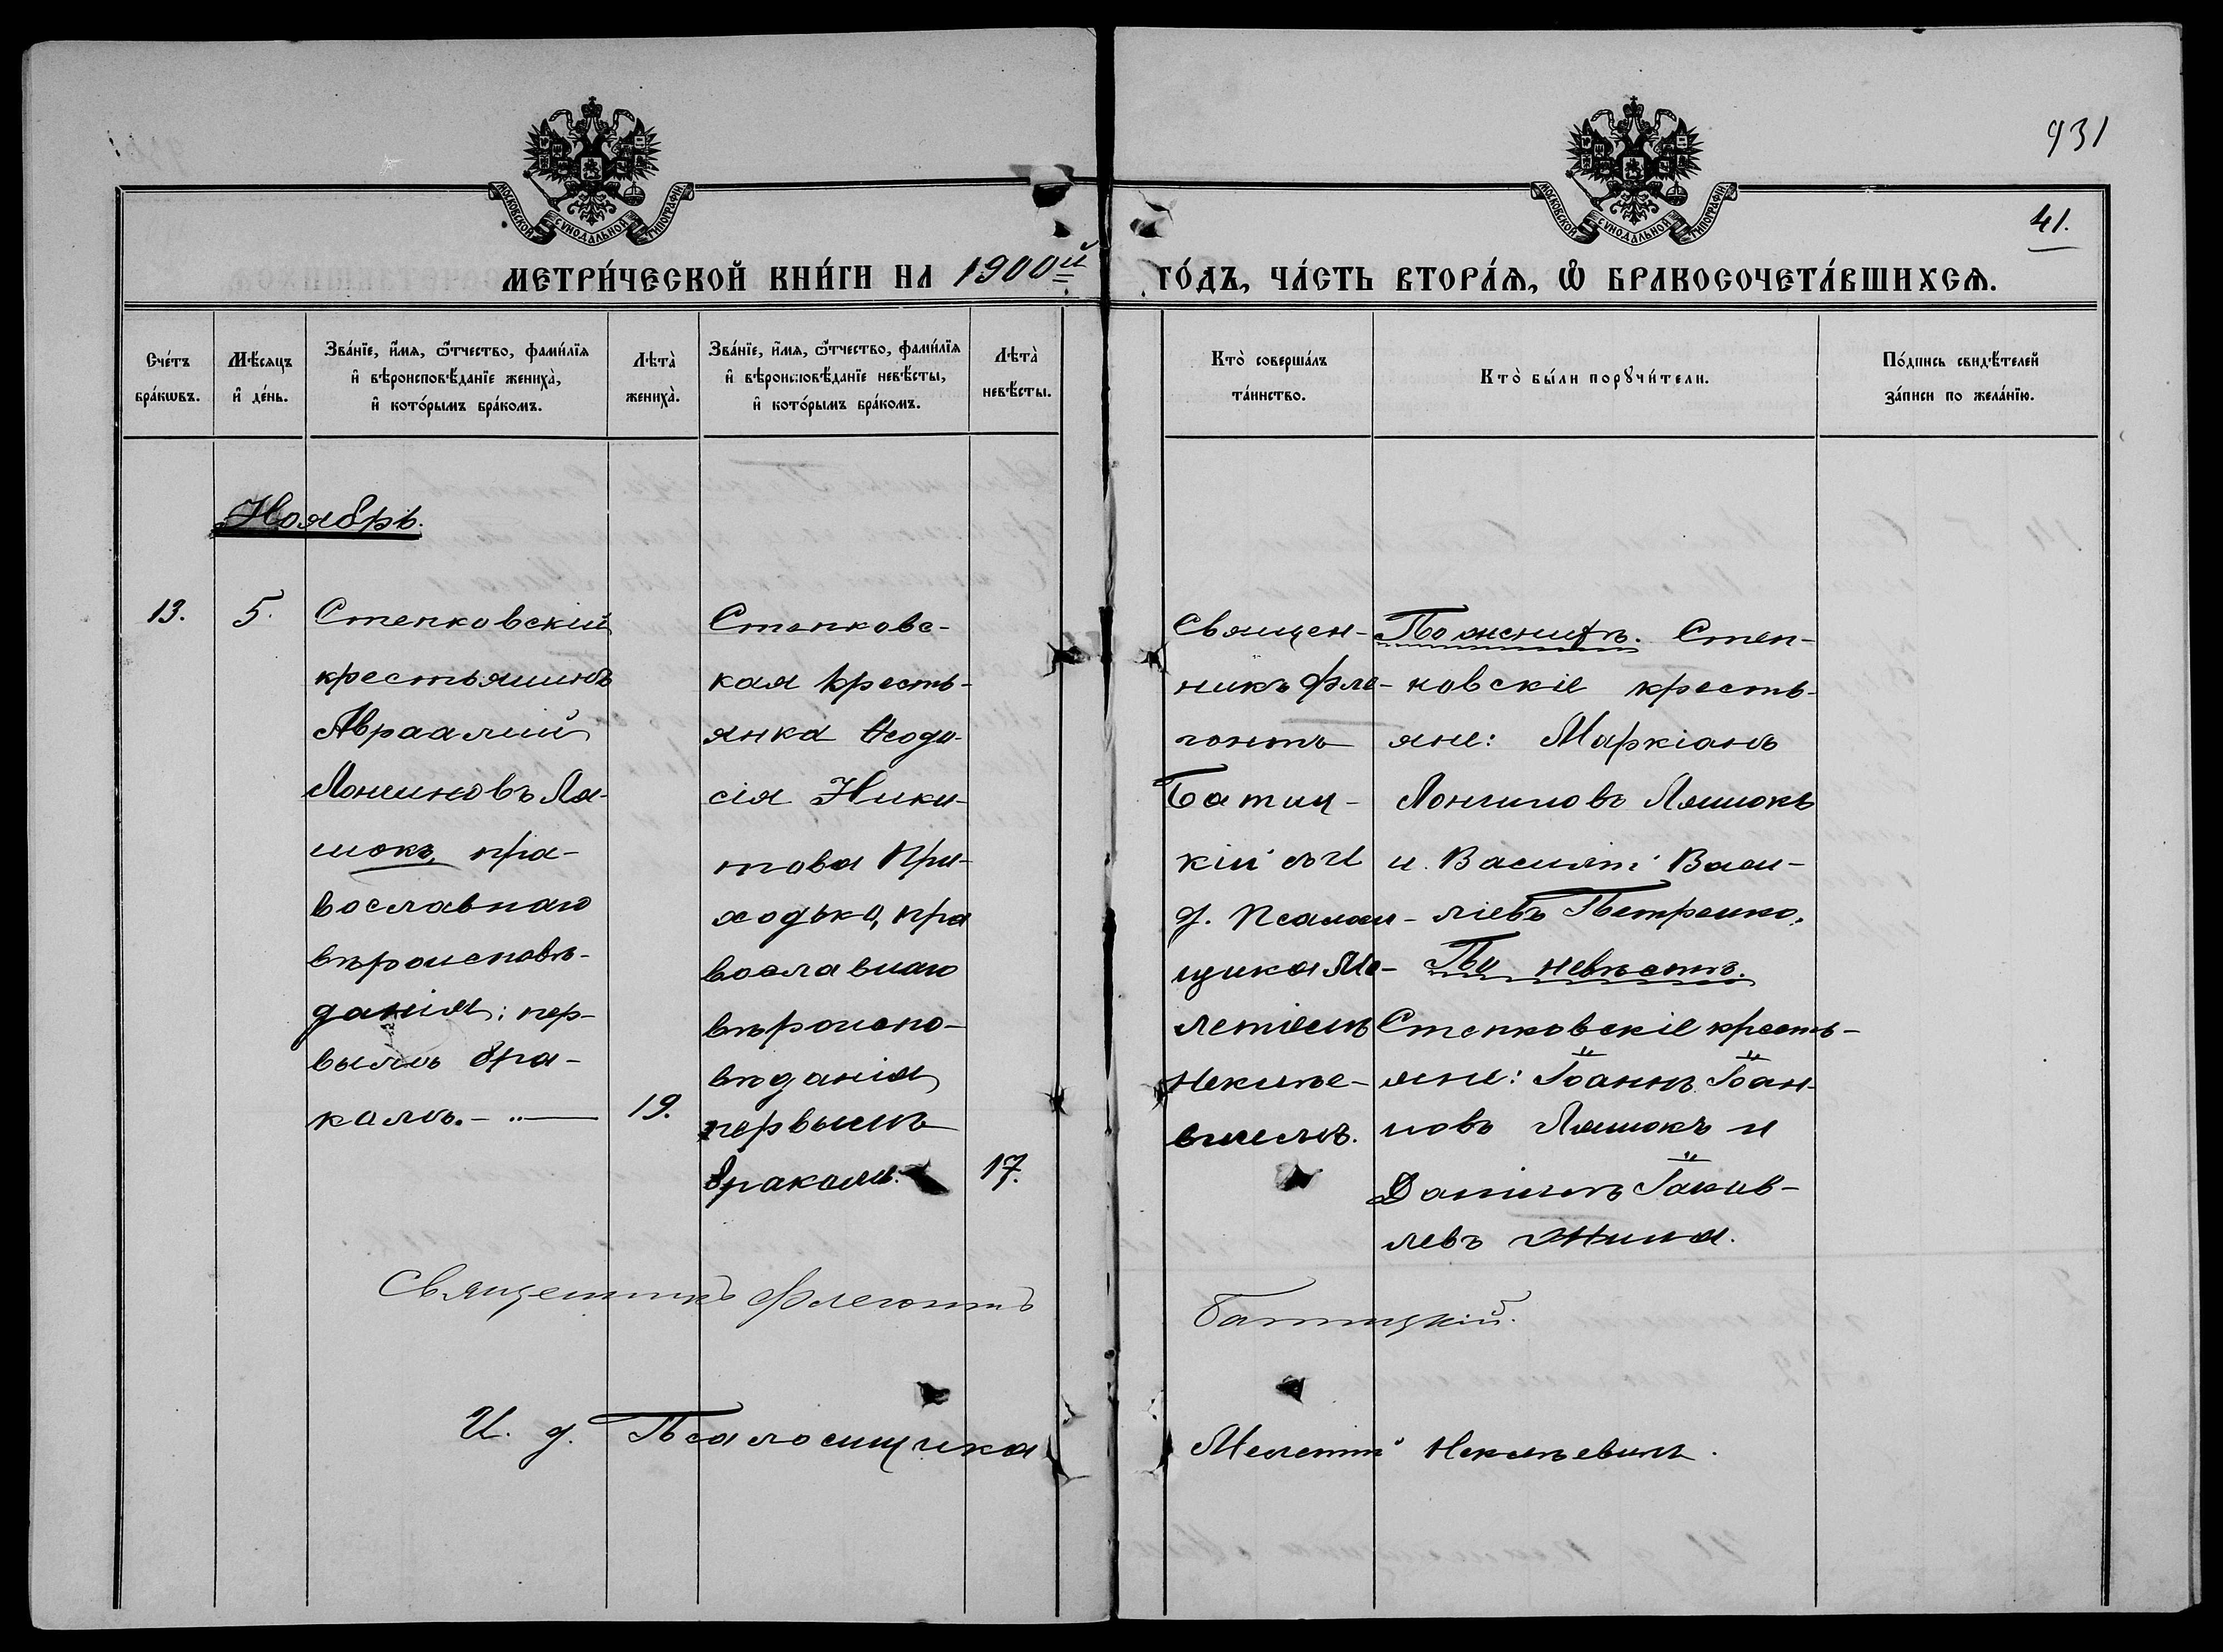 931
41.
МОСКОВСКОЙ СѴНОДАЛЬНОЙ ТИПОГРАФІИ
МОСКОВСКОЙ СѴНОДАЛЬНОЙ ТИПОГРАФІИ
МЕТРИ́ЧЕСКОЙ КНИ́ГИ НА 1900й ГО́ДЪ, ЧА́СТЬ ВТОРА́Ѧ, Ѽ БРАКОСОЧЕТА́ВШИХСѦ.
Сче́тъ
бра́кѡвъ.
Мѣ́сяцъ
и҆ де́нь.
Зва́нїе, и҆́мѧ, ѻ҆́тчество, фами́лїѧ
и҆ вѣроисповѣ́данїе жениха̀,
и҆ кото́рымъ бра́комъ.
Лѣта̀
жениха̀.
Зва́нїе, и҆́мѧ, ѻ҆́тчество, фами́лїѧ
и҆ вѣроисповѣ́данїе невѣ́сты,
и҆ кото́рымъ бра́комъ.
Лѣта̀
невѣ́сты.
Кто̀ соверша́лъ
та́инство.
Кто̀ бы́ли порꙋчи́тели.
По́дпись свидѣ́телей
за́писи по жела́нїю.
Ноябрь.
13.
5.
Степковскій
крестьянинъ
Авраамій
Лонгиновъ Ля-
шокъ, пра-
вославнаго
вѣроисповѣ-
данія; пер-
вымъ бра-
комъ.
19.
Степковс-
кая кресть-
янка Ѳеодо-
сія Ники-
това При-
ходька, пра
вославнаго
вѣроиспо-
вѣданія
первымъ
бракомъ.
17.
Священ-
никъ Фле-
гонтъ
Батиц-
кій съ И
д. Псалом-
щика Ме-
летіемъ
Некилѣ-
вичемъ.
По женихѣ. Степ-
ковскіе кресть-
яне: Маркіанъ
Лонгиновъ Ляшокъ
и Василій Васи-
ліевъ Петренко.
По невѣстѣ.
Степковскіе кресть-
яне: Іоаннъ Іоан-
новъ Ляшокъ и
Даніилъ Іаков-
левъ
Священникъ Флегонтъ Батицкій.
И. д. Псаломщика Мелетій